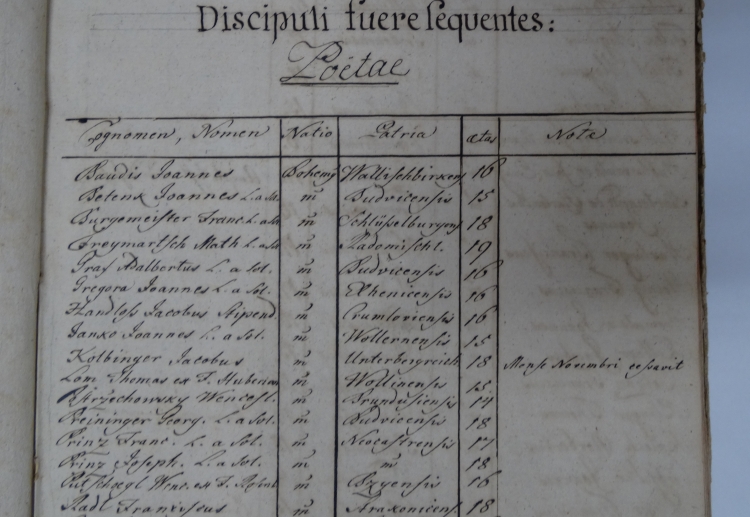 Discipuli fuere sequentes:
Poëtae
Cognomen, Nomen Natio Patria ætas Nota
Baudis Joannes Bohemg Wallischbirxens 16
Betenk Joannes L. a Sol. m̃ Budvicensis 15
Burgemeister Franc. L. a Sol. m̃ Schlüßelburgens 18
Freymartsch Math L. a Sol. m̃ Rademischl. 19
Graf Adalbertus L. a Sol. m̃ Budvicensis 16
Gregora Joannes L. a Sol. m̃ Elhenicensis 16
Handloss Jacobus Stipend m̃ Crumloviensis 16
Janko Joannes L. a Sol. m̃ Wollernensis 15
Kolbinger Jacobus m̃ Unterbergreich. 18 Mense Novembri cessavit
Lom Thomas ex F. Huberian m̃ Wollinensis 15
Petrzechowsky Wencesl. m̃ Brundusiensis 14
Preininger Georg. L. a Sol. m̃ Budvicensis 18
Prinz Franc. L. a Sol. m̃ Neocastrensis 17
Prinz Joseph. L. a Sol. m̃ m̃ 18
Wenc. ex F. Rosenb m̃ 16
Radl Franciscus m̃ Strakonicens. 18